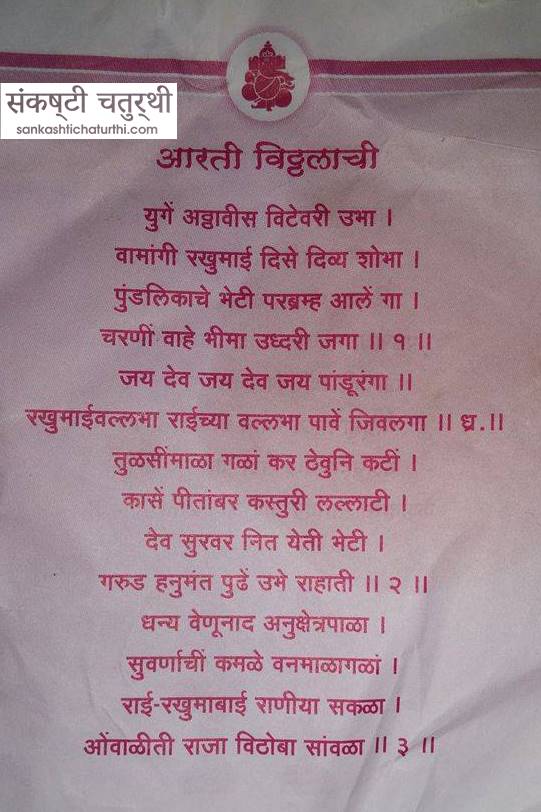 संकष्टी चतुर्थी
sankashtichaturthi.com
आरती विठ्ठलाची
युगें अठ्ठावीस विटेवरी उभा ।
वामांगी रखुमाई दिसे दिव्य शोभा ।
पुंडलिकाचे भेटी परब्रम्ह आलें गा ।
चरणीं वाहे भीमा उध्दरी जगा ॥ १ ॥
जय देव जय देव जय पांडूरंगा ॥
रखुमाईवल्लभा राईच्या वल्लभा पावें जिवलगा ॥ ध्र.॥
तुळसींमाळा गळां कर ठेवुनि कटीं ।
कासें पीतांबर कस्तुरी लल्लाटी ।
देव सुरवर नित येती भेटी ।
गरुड हनुमंत पुढें उभे राहाती ॥ २ ॥
धन्य वेणूनाद अनुक्षेत्रपाळा ।
सुवर्णाचीं कमळे वनमाळागळां ।
राई-रखुमाबाई राणीया सकळा ।
ओंवाळीती राजा विठोबा सांवळा ॥ ३ ॥